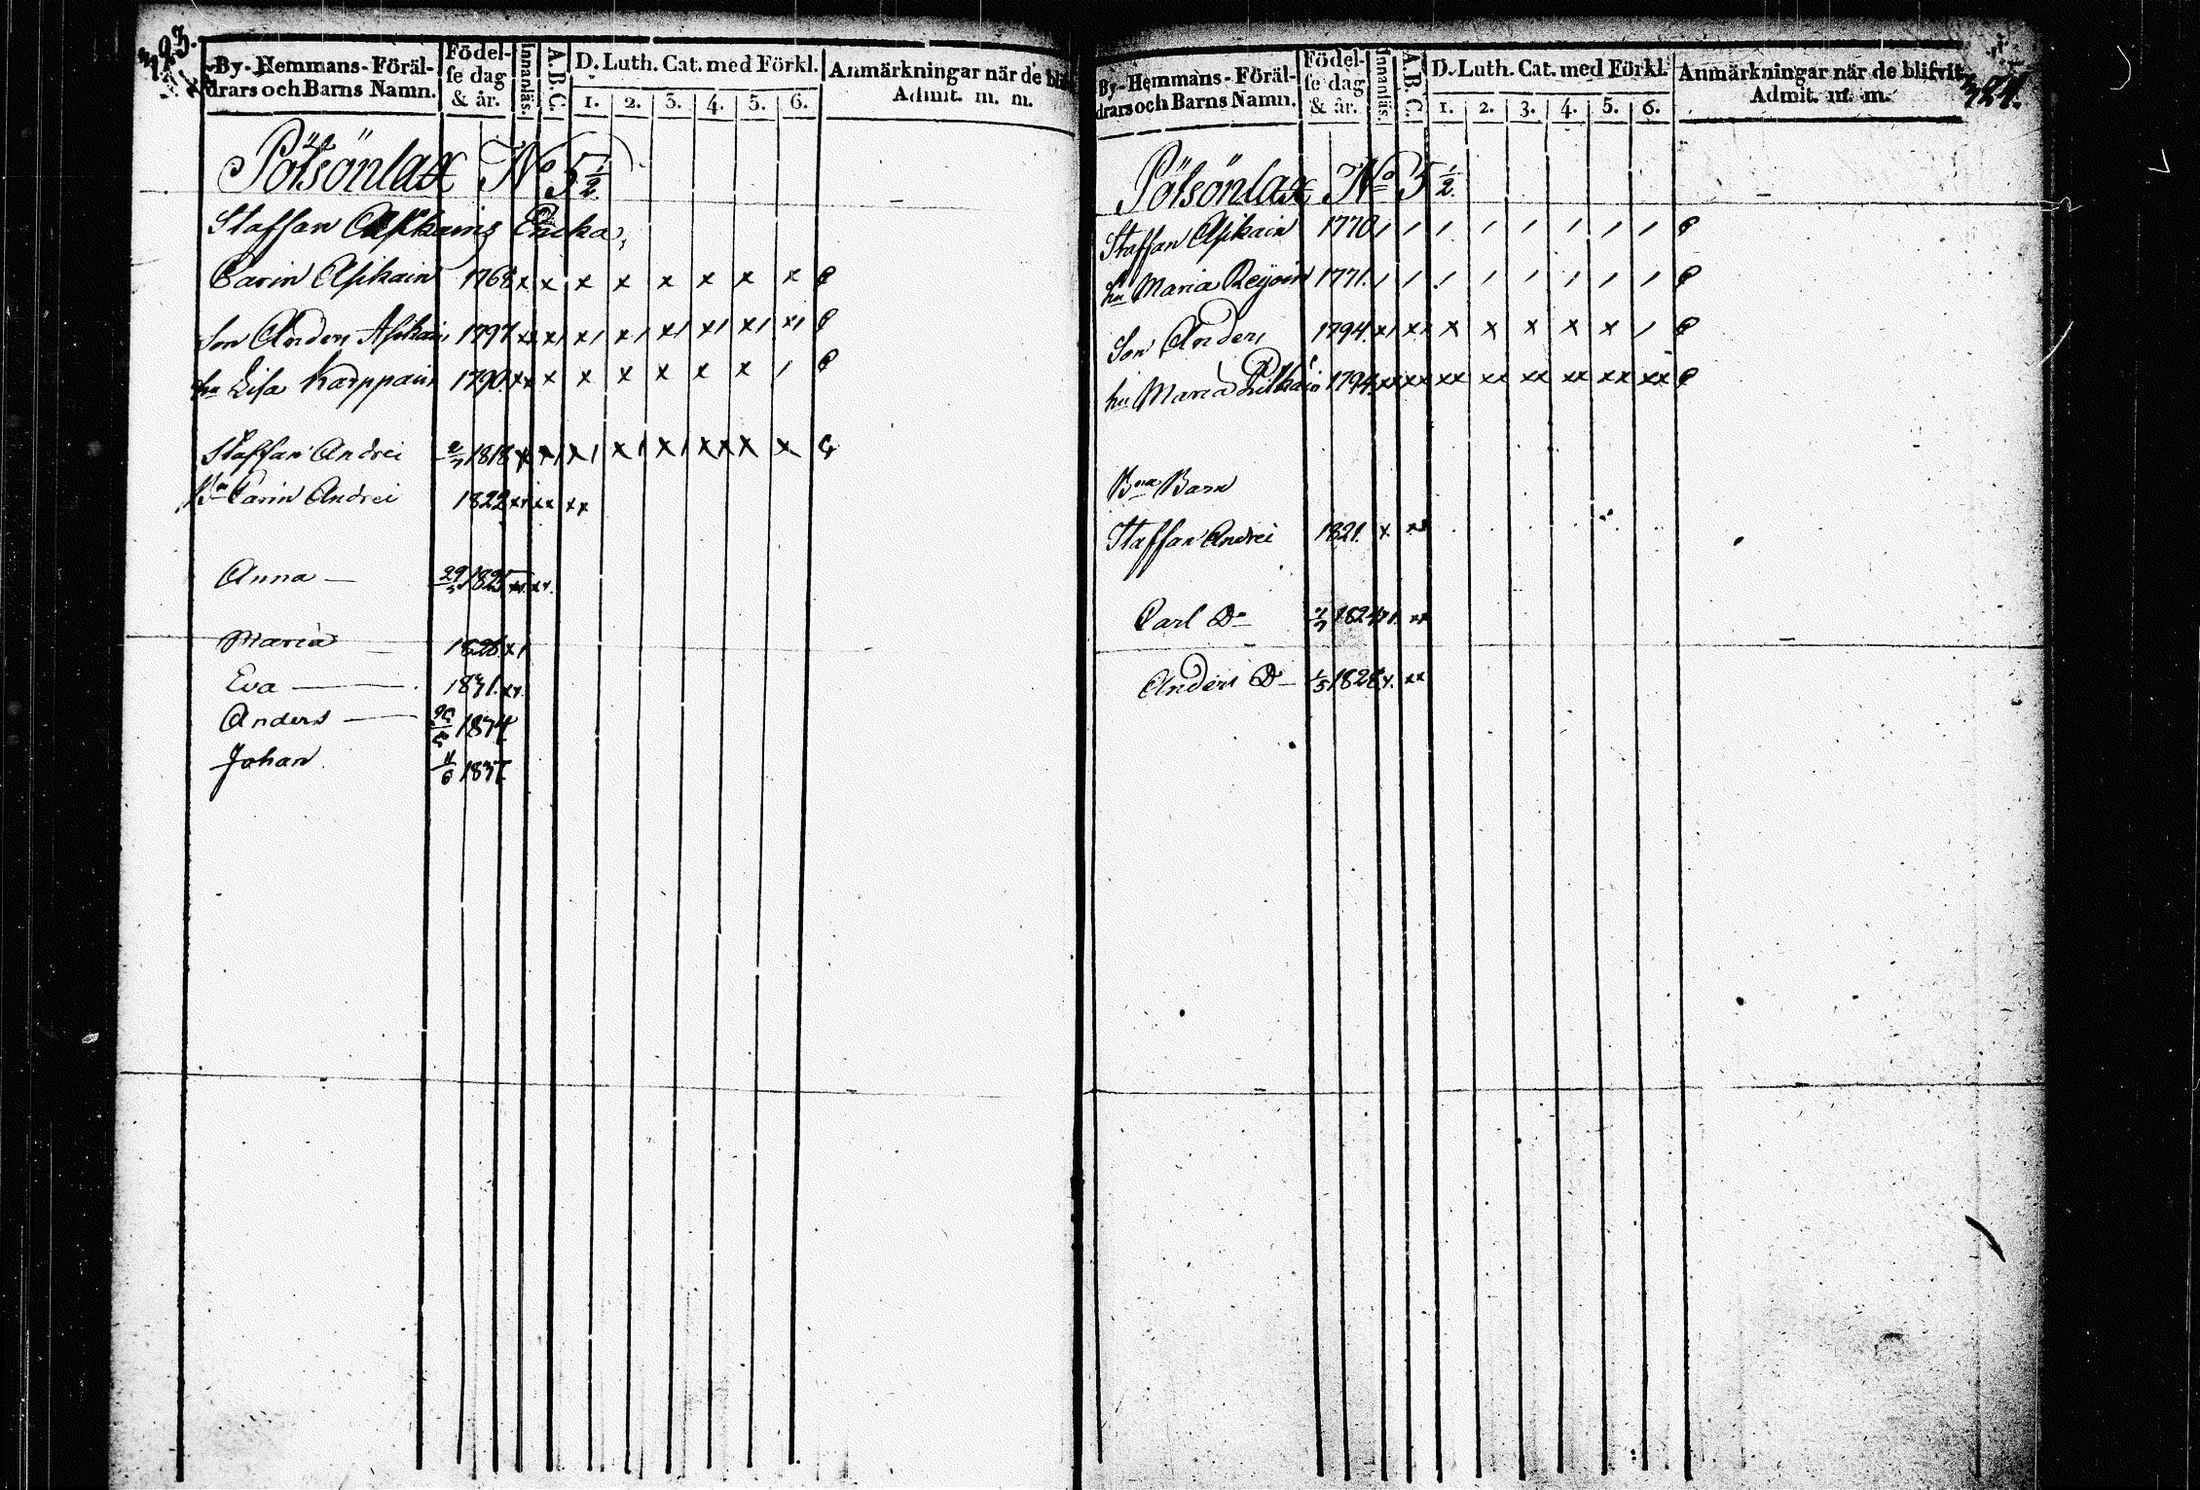 323.
By-Hemmans-Föräl-
drars och Barns Namn.
Födel-
se dag
& år.
Innanläs.
A.B.C.
D. Luth. Cat. med Förkl.
1. 2. 3. 4. 5. 6.
Anmärkningar när de blif
Admit. m. m.
Pötsönlax No 5 1/2
Staffan Asikains Encka,
Carin Asikain 1768 x x x x x x x x
Son Anders Asikain 1797
hu Lisa Karppain 1790
Staffan Andrei 1818
Carin Andrei 1822 xx xx
Anna — 29/3 1825
Maria — 1828 x1
Eva — 1831.
Anders — 1834
Johan 11/6 1837
324.
By-Hemmans-Föräl-
drars och Barns Namn.
Födel-
se dag
& år.
Innanläs.
A.B.C.
D. Luth. Cat. med Förkl.
1. 2. 3. 4. 5. 6.
Anmärkningar när de blifvit
Admit. m. m.
Pötsönlax No 5 1/2
Staffan Asikain 1770 / / / / / / / /
hu Maria Reijoin 1771. / / / / / / /
Son Anders 1794 x1 xx x x x x x /
hu Maria 1794 xx xx xx xx xx xx xx xx
Barn
Staffan Andrei 1821. x
Carl Do 1824
Anders Do 1/5 1828 xx